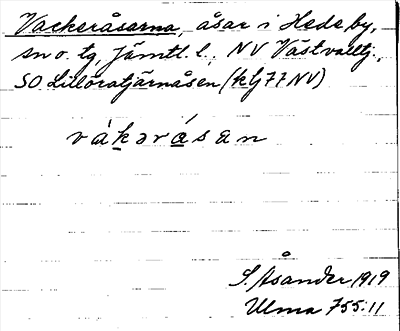 Vackeråsarna, åsar i Hede by,
sn o. tg, Jämtl. l., NV Västvalltj.,
SO. Lilloratjärnåsen (klj 77 NV)
vákərásan
S. Åsander 1919
Ulma 755:11